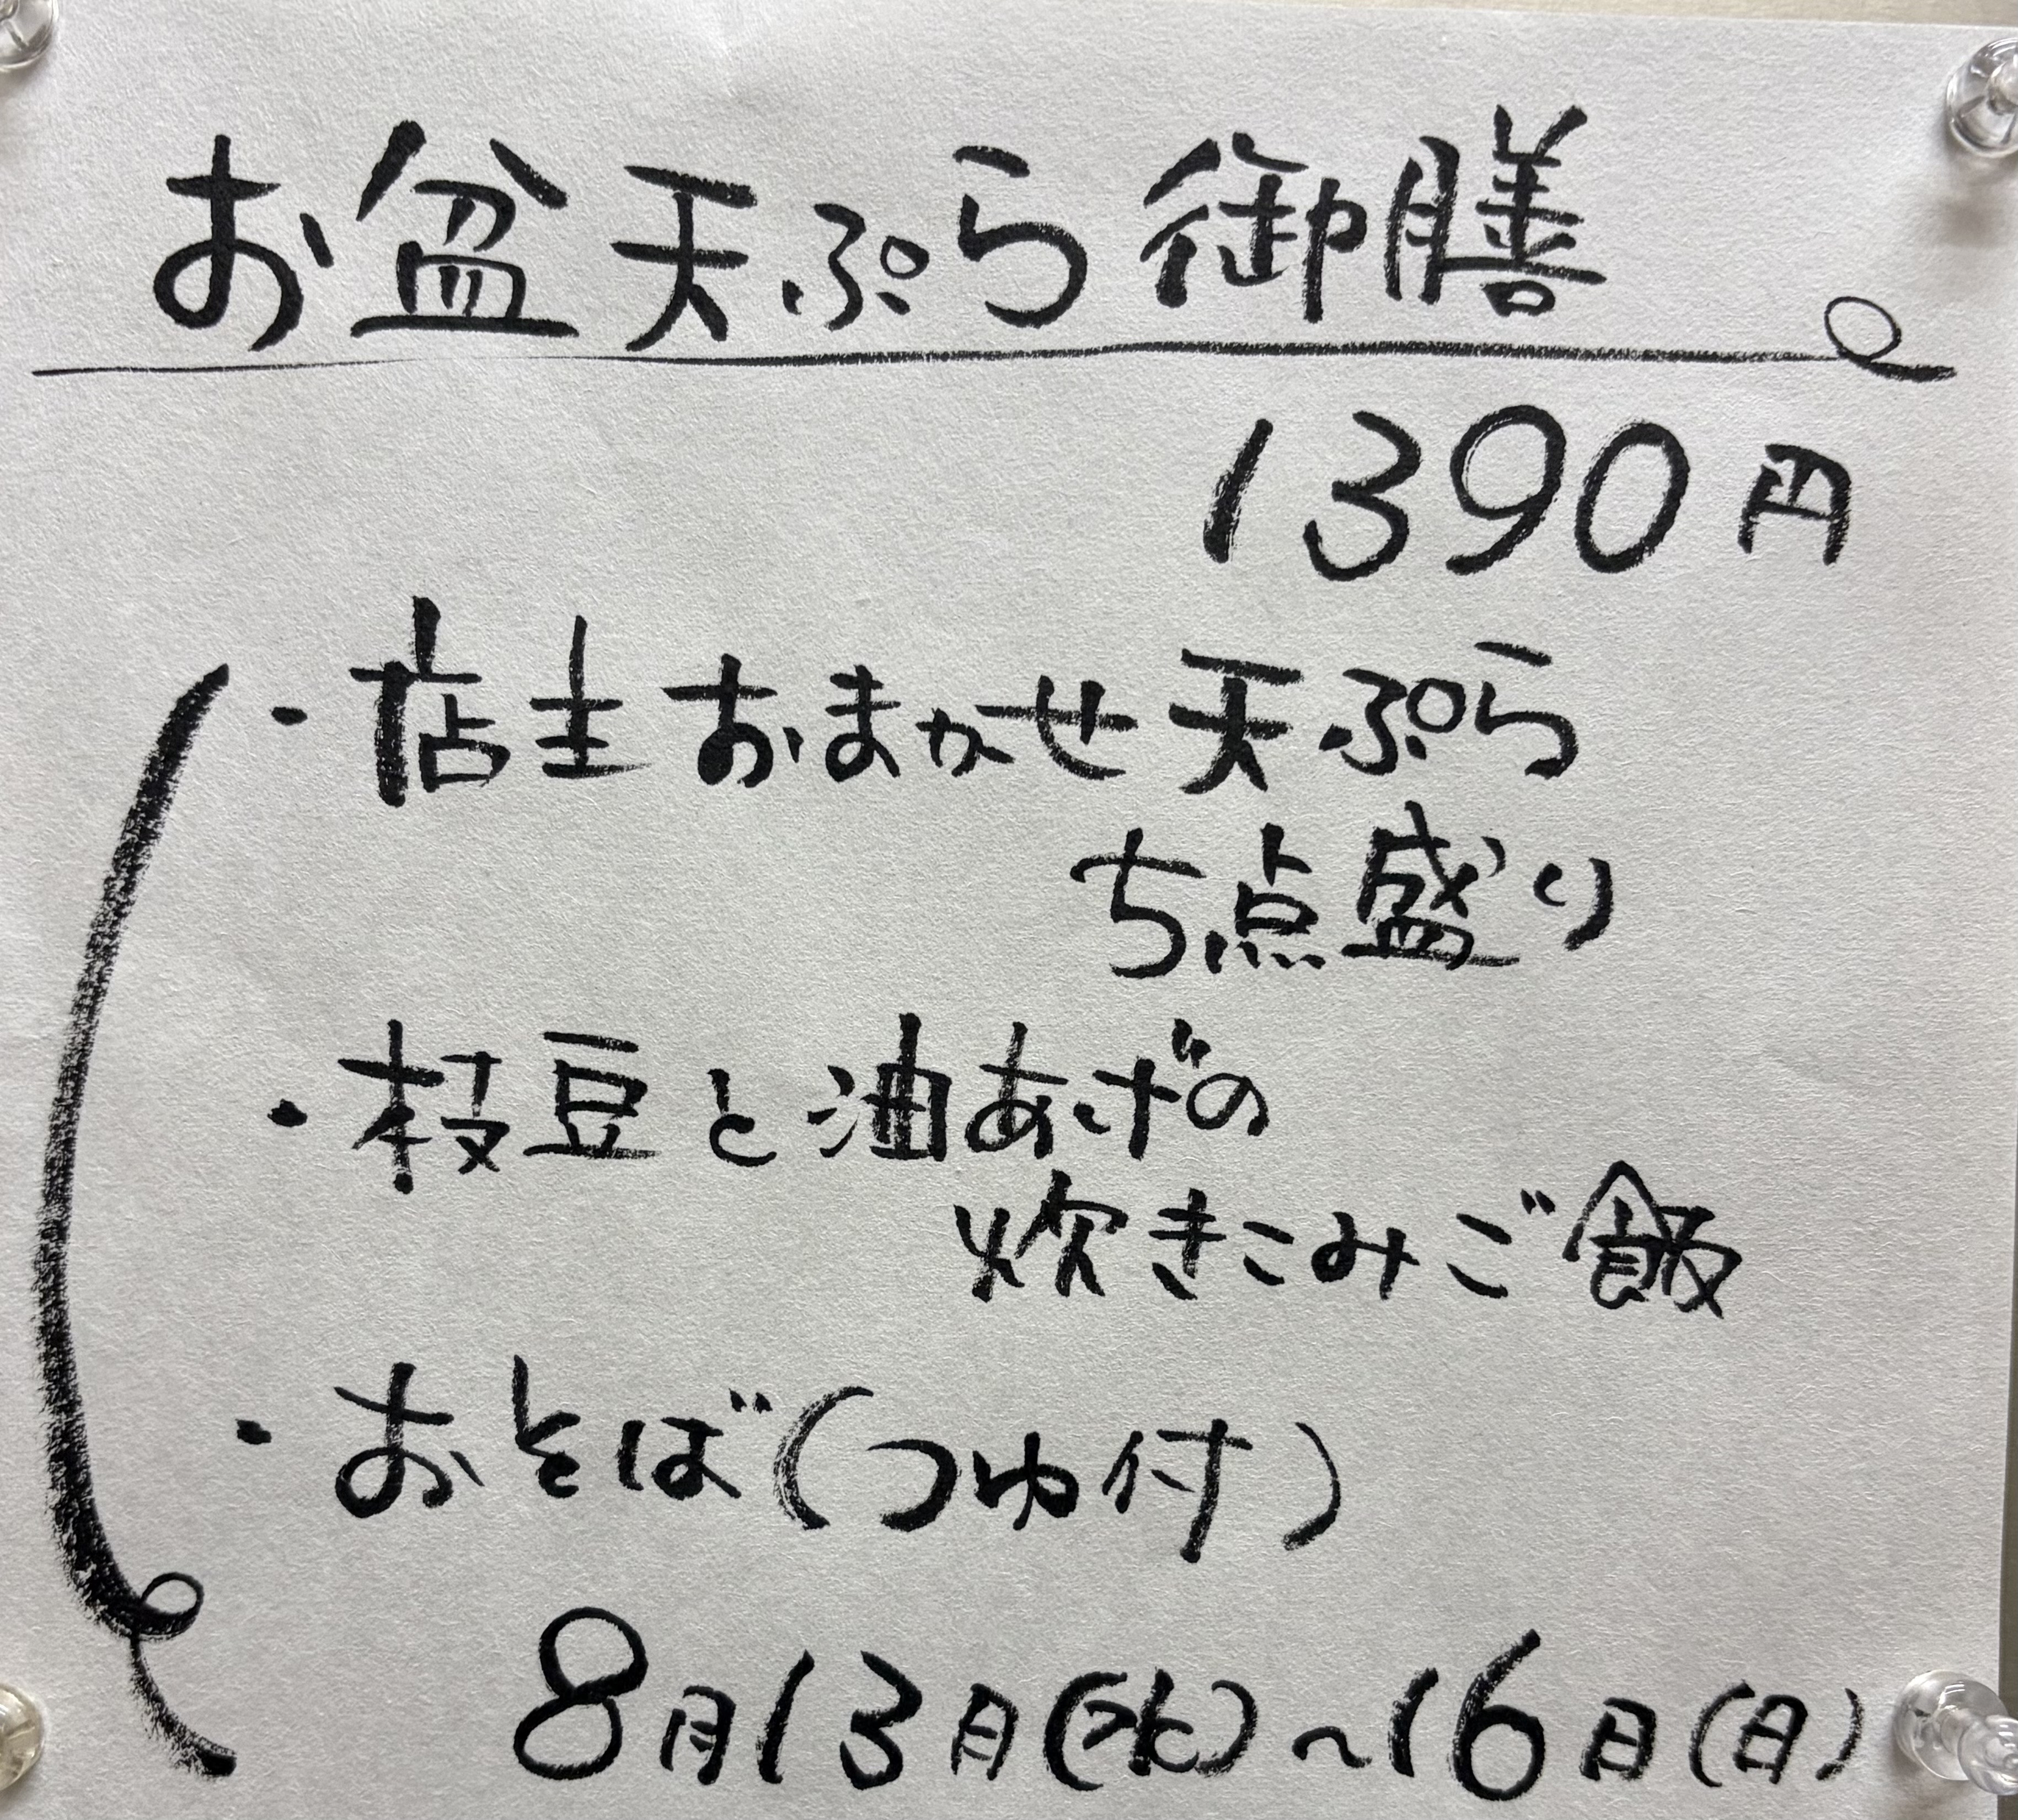 お盆天ぷら御膳
1390円
・店主おまかせ天ぷら
5点盛り
・枝豆と油あげの
炊きこみご飯
・おそば(つゆ付)
8月13月(水)~16日(日)